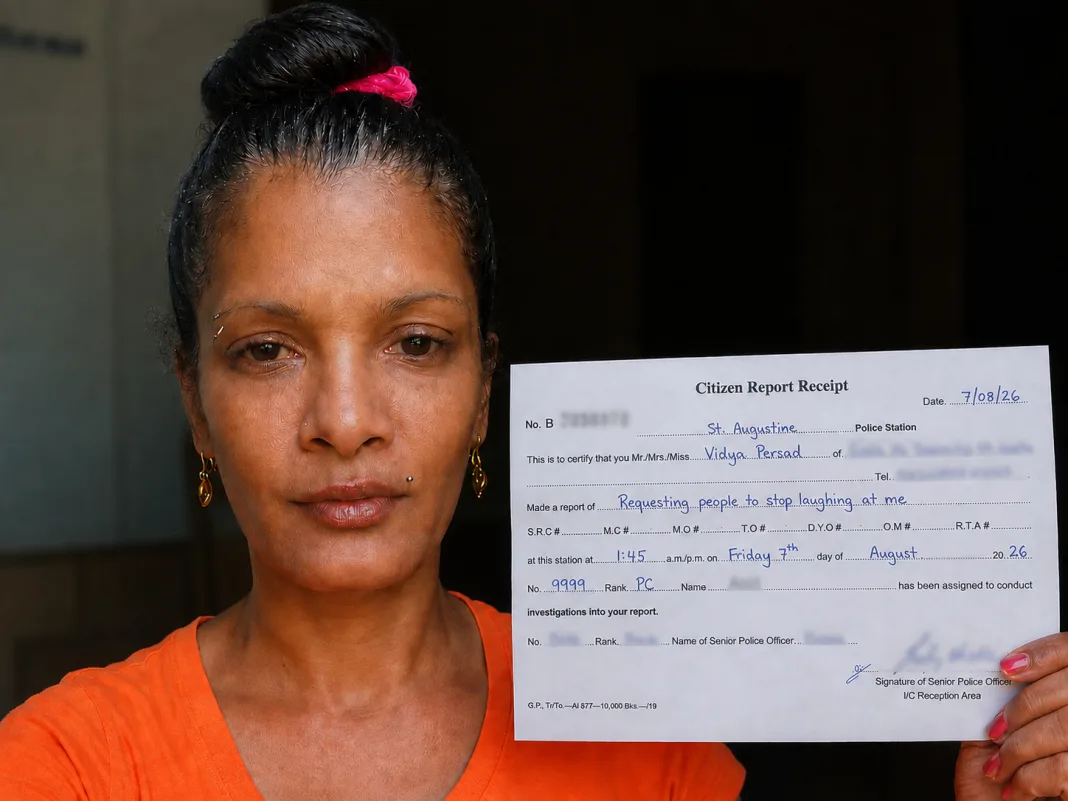 Citizen Report Receipt
Date. 7/08/26
No. B
St. Augustine Police Station
This is to certify that you Mr./Mrs./Miss Vidya Persad of.
Tel.
Made a report of Requesting people to stop laughing at me
S.R.C # M.C # M.O # T.O # D.Y.O # O.M # R.T.A #
at this station at 1:45 a.m./p.m. on Friday 7th day of August 20 26
No. 9999 Rank. PC Name has been assigned to conduct
investigations into your report.
No. Rank. Name of Senior Police Officer
Signature of Senior Police Officer
I/C Reception Area
G.P., Tr/To.—Al 877—10,000 Bks.—/19